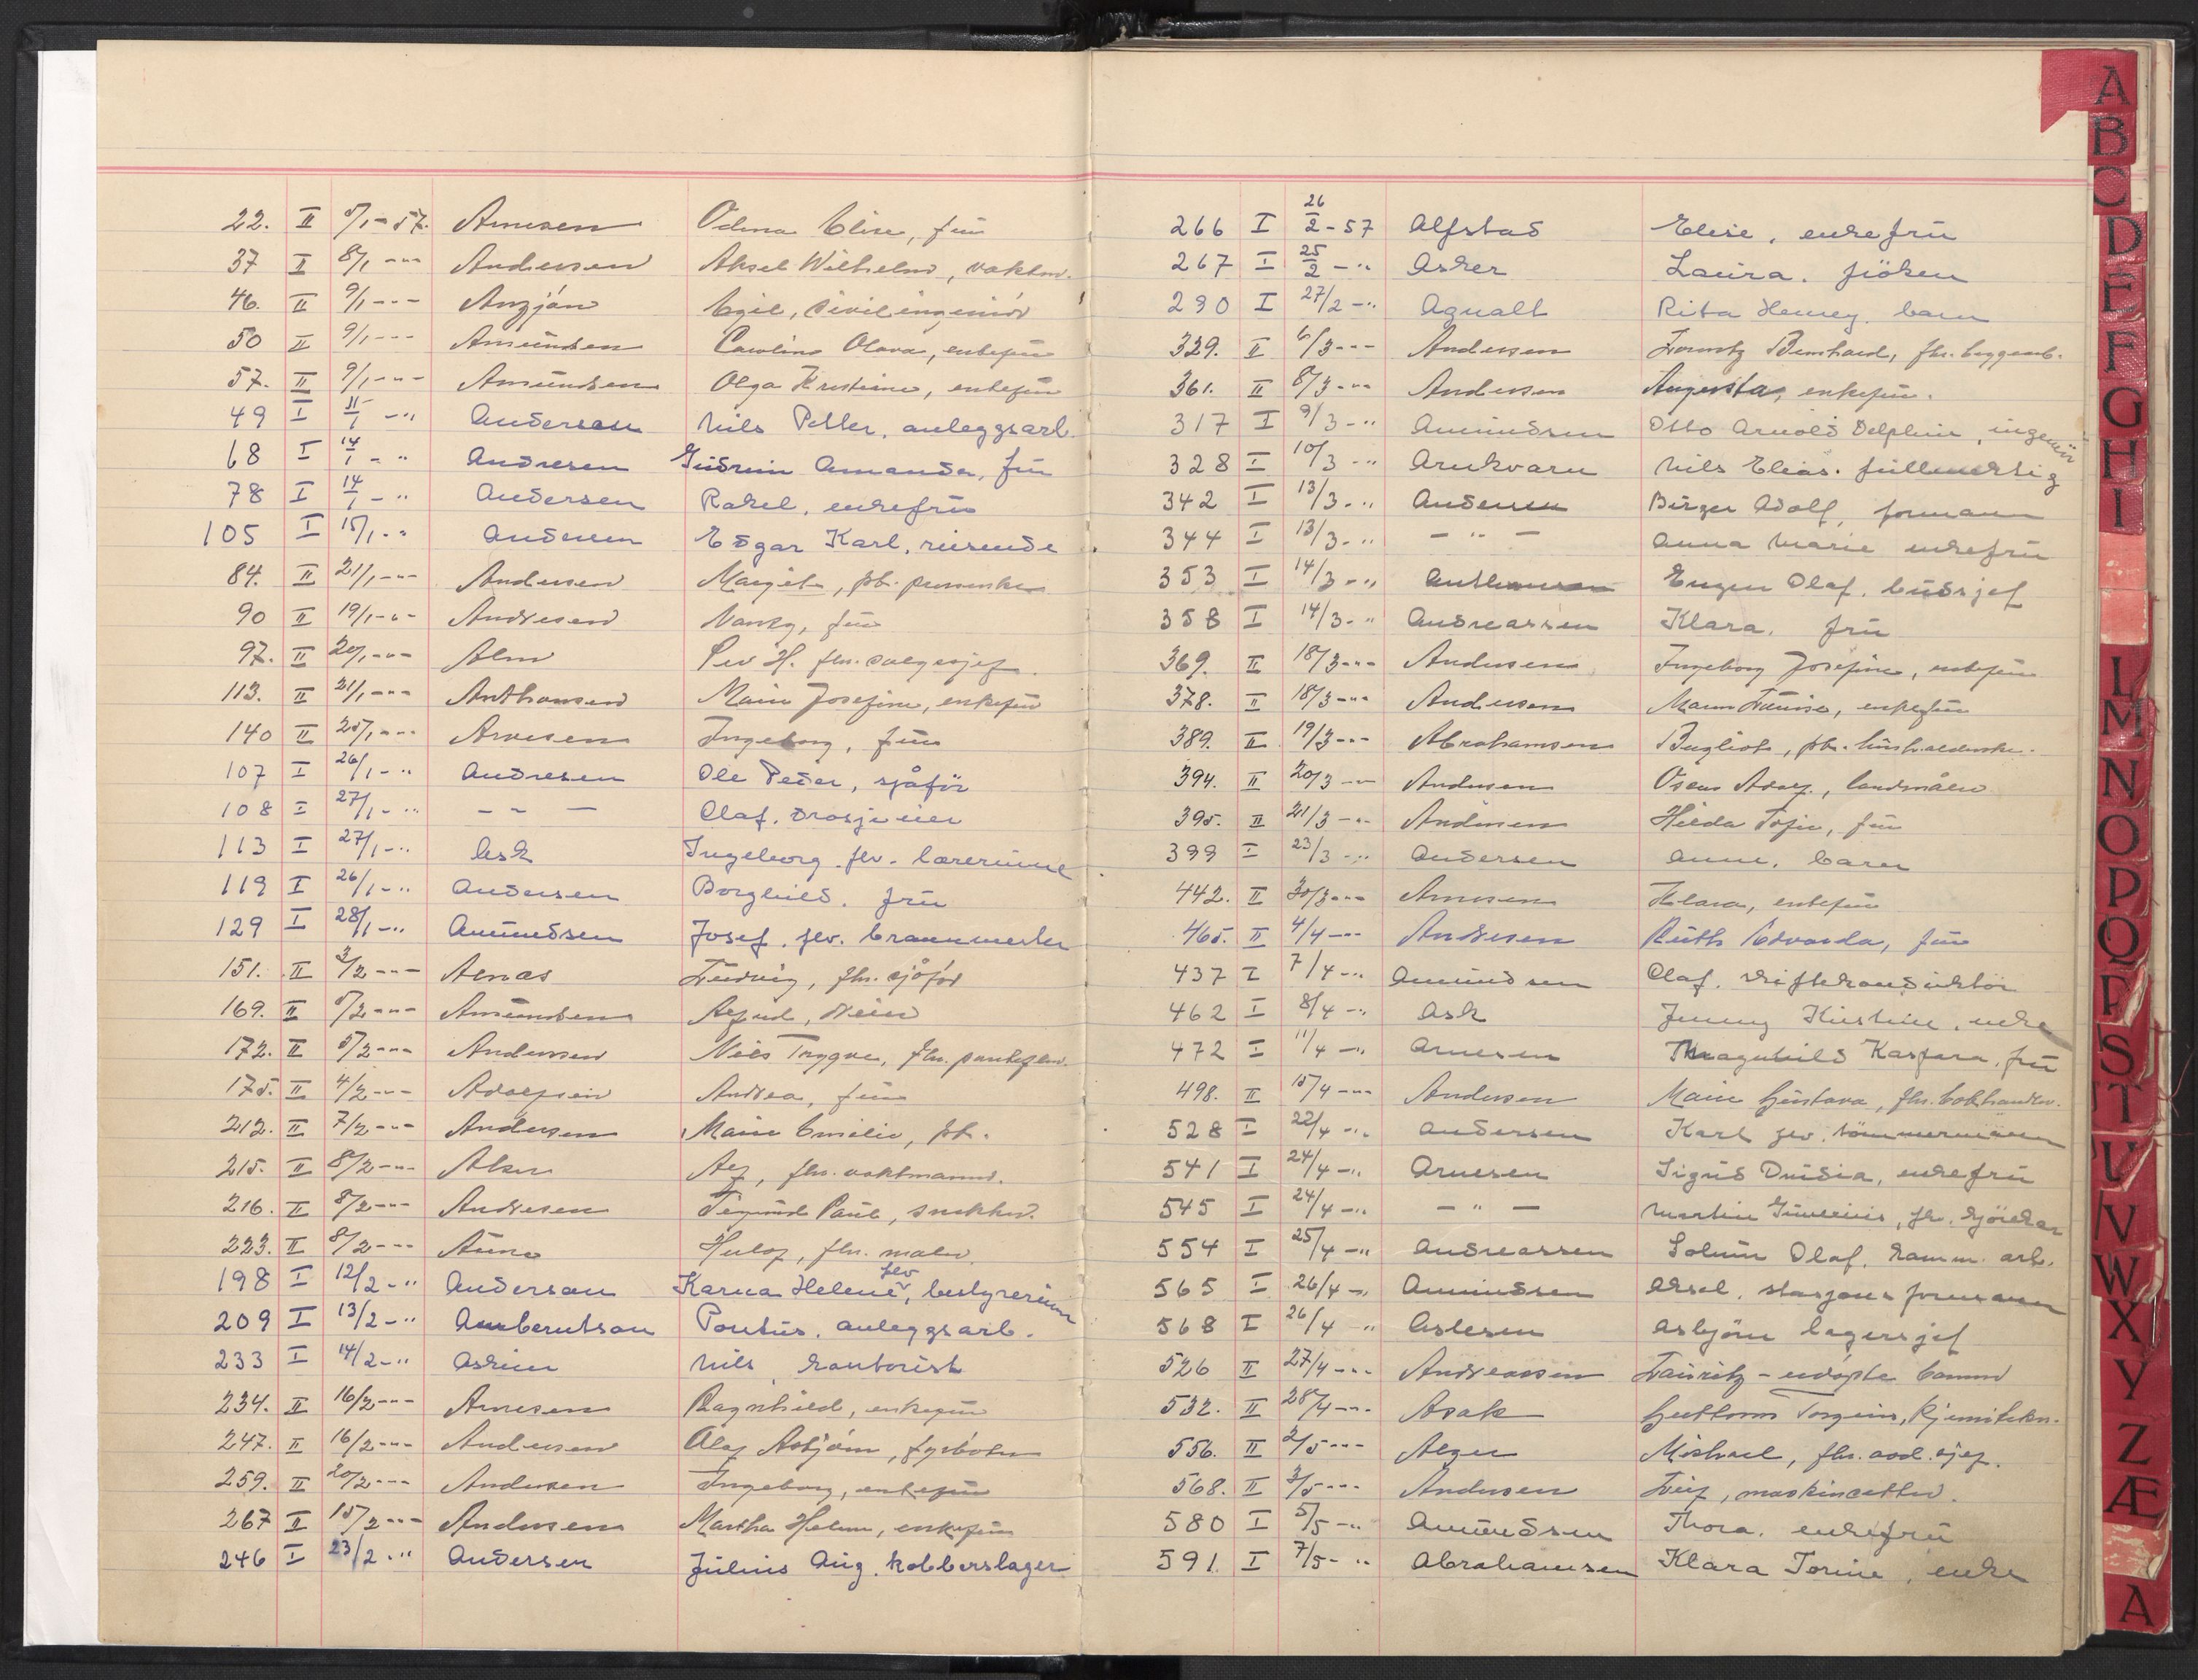 22. II 5/1-57. Arnesen Odena Elise, frü
37 II 8/1 -"- Andersen Aksel Wilhelm, vaktm.
46. II 9/1 -"- Anzjøn Egil, sivilingeniör
50 II 9/1 -"- Amündsen Caroline Olava, enkefrü
57. II 9/1 -"- Amündsen Olga Kristine, enkefrü
49 I 11/1 -" Anderson Nils Petter, anleggsarb.
68 I 14/1 -" Andresen Güdrün Amanda, frü
78 I 14/1 -" Andersen Rakel, enkefrü
105 I 15/1 -" Andersen Edgar Karl, reisende
84. II 21/1 -"- Andersen Margit, fb. pensenske
90 II 19/1 -"- Andresen Nanky, frü
97. II 20/1 -"- Alm Per H. fhv. salgssjef
113. II 21/1 -"- Anthonsen Marie Josefine, enkefrü
140 II 25/1 -"- Arnesen Ingeborg, frü
107 I 26/1 -" Andresen Ole Peder, sjåför
108 I 27/1 -" - " - Olaf. drosjeeier
113 I 27/1 -" Ask Ingeborg. fhv. lærerinne
119 I 26/1 -" Andersen Borghild. frü
129 I 28/1 -" Amündsen Josef. fhv. brannmester
151. II 3/2 -"- Arnas Lüdvig, fhv. sjåför
169. II 5/2 -"- Amündsen Alfred, eier
172. II 5/2 -"- Andersen Nils Trygve, fhv.
175. II 4/2 -"- Adolfsen Andrea, frü
212. II 7/2 -"- Andersen Marie Emilie, fb.
215. II 8/2 -"- Alm Alf, fhv. vaktmann.
216. II 8/2 -"- Andresen Sigürd Paül, snekker.
223. II 8/2 -"- Aüne Herlof, fhv. maler
198 I 12/2 -" Anderson Karna Helene, fhv bestyrerinne
209 I 13/2 -" Amberntson Pontüs. anleggsarb.
233 I 14/2 -" Askim Nils kontorist
234. II 16/2 -"- Arnesen Ragnhild, enkefrü
247. II 16/2 -"- Andersen Olaf Asbjörn, fyrböter
259. II 20/2 -"- Andersen Ingeborg, enkefrü
267 II 15/2 -"- Andersen Martha Helene, enkefrü
246 I 23/2 -" Andersen Jülius Aüg. kobberslager
266 I 26/2 -57 Alfstad Elise, enkefrü
267 I 25/2 -" Asker Laüra. fröken
290 I 27/2 -" Agnalt Rita Henny. barn
329. II 6/3 -"- Andersen Lorentz Bernhard, fhv. byggearb.
361. II 8/3 -"- Andersen Aügüsta, enkefrü.
317 I 9/3 -" Amündsen Otto Arnold Delphin, ingeniör
328 I 10/3 -" Arnkværn Nils Elias. füllmektig
342 I 13/3 -" Andersen Birger Adolf, formann
344 I 13/3 -" - " - Anna Marie enkefrü
353 I 14/3 -" Anthonsen Eugen Olaf. büdsjef
358 I 14/3 -" Andreassen Klara. frü
369. II 18/3 -"- Andersen Ingeborg Josefine, enkefrü
378. II 18/3 -"- Andersen Maren Loüise, enkefrü
389. II 19/3 -"- Abrahamsen Bergliot, fb. hüsholderske.
394. II 20/3 -"- Andersen Oscar Adolf., landmåler
395. II 21/3 -"- Andersen Hilda Sofie, frü
399 I 23/3 -" Andersen Anne, barn
442. II 30/3 -"- Arnesen Klara, enkefrü
465. II 4/4 -"- Andresen Rüth Edvarda, frü
437 I 7/4 -" Amündsen Olaf. skiftekondüktör
462 I 8/4 -" Ask Jenny Kirstine, enke
472 I 11/4 -" Arnesen Magnhild Kaspara, frü
498. II 15/4 -"- Andersen Marie Güstava, fhv. bokhandler.
528 I 22/4 -" Andersen Karl fhv. tömmermann
541 I 24/4 -" Arnesen Sigrid Ovidia, enkefrü
545 I 24/4 -" - " - Martin Günerius, fhv. kjörekar
554 I 25/4 -" Andreassen Solüm Olaf. komm. arb.
565 I 26/4 -" Amündsen Aksel. stasjonsformann
568 I 26/4 -" Aslesen Asbjörn lagersjef
526 II 27/4 -"- Andreassen Laüritz - üdöpte barn
532. II 28/4 -"- Asak Guttorm Torgeirs, kjemitekn.
556. II 2/5 -"- Alger Michael, fhv. avd.sjef.
568. II 3/5 -"- Andersen Leif, maskinsetter.
580 I 5/5 -" Amündsen Thora. enkefrü
591 I 7/5 -" Abrahamsen Klara Torine, enke
A
B
C
D
E
F
G
H
I
L
M
N
O
P
Q
R
S
T
U
V
W
X
Y
Z
Æ
A